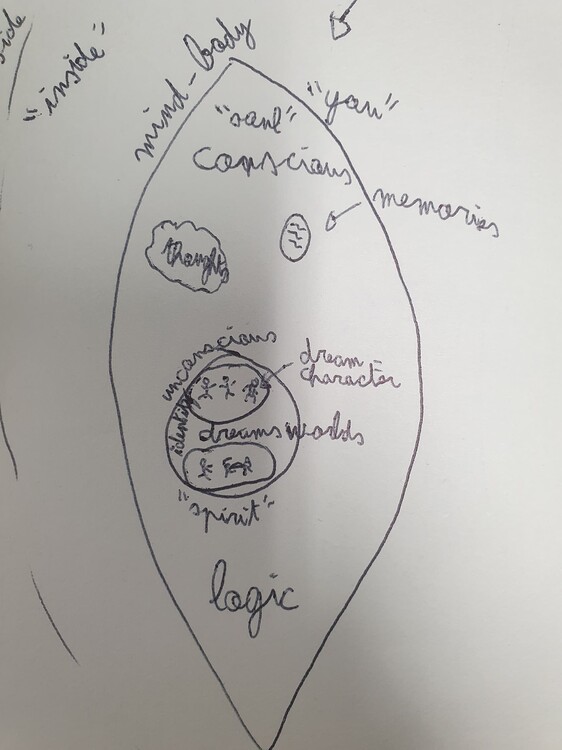 side
"inside"
mind-body
"soul"
"you"
conscious
memories
thoughts
unconscious
dream
character
identity
dreams worlds
"spirit"
logic